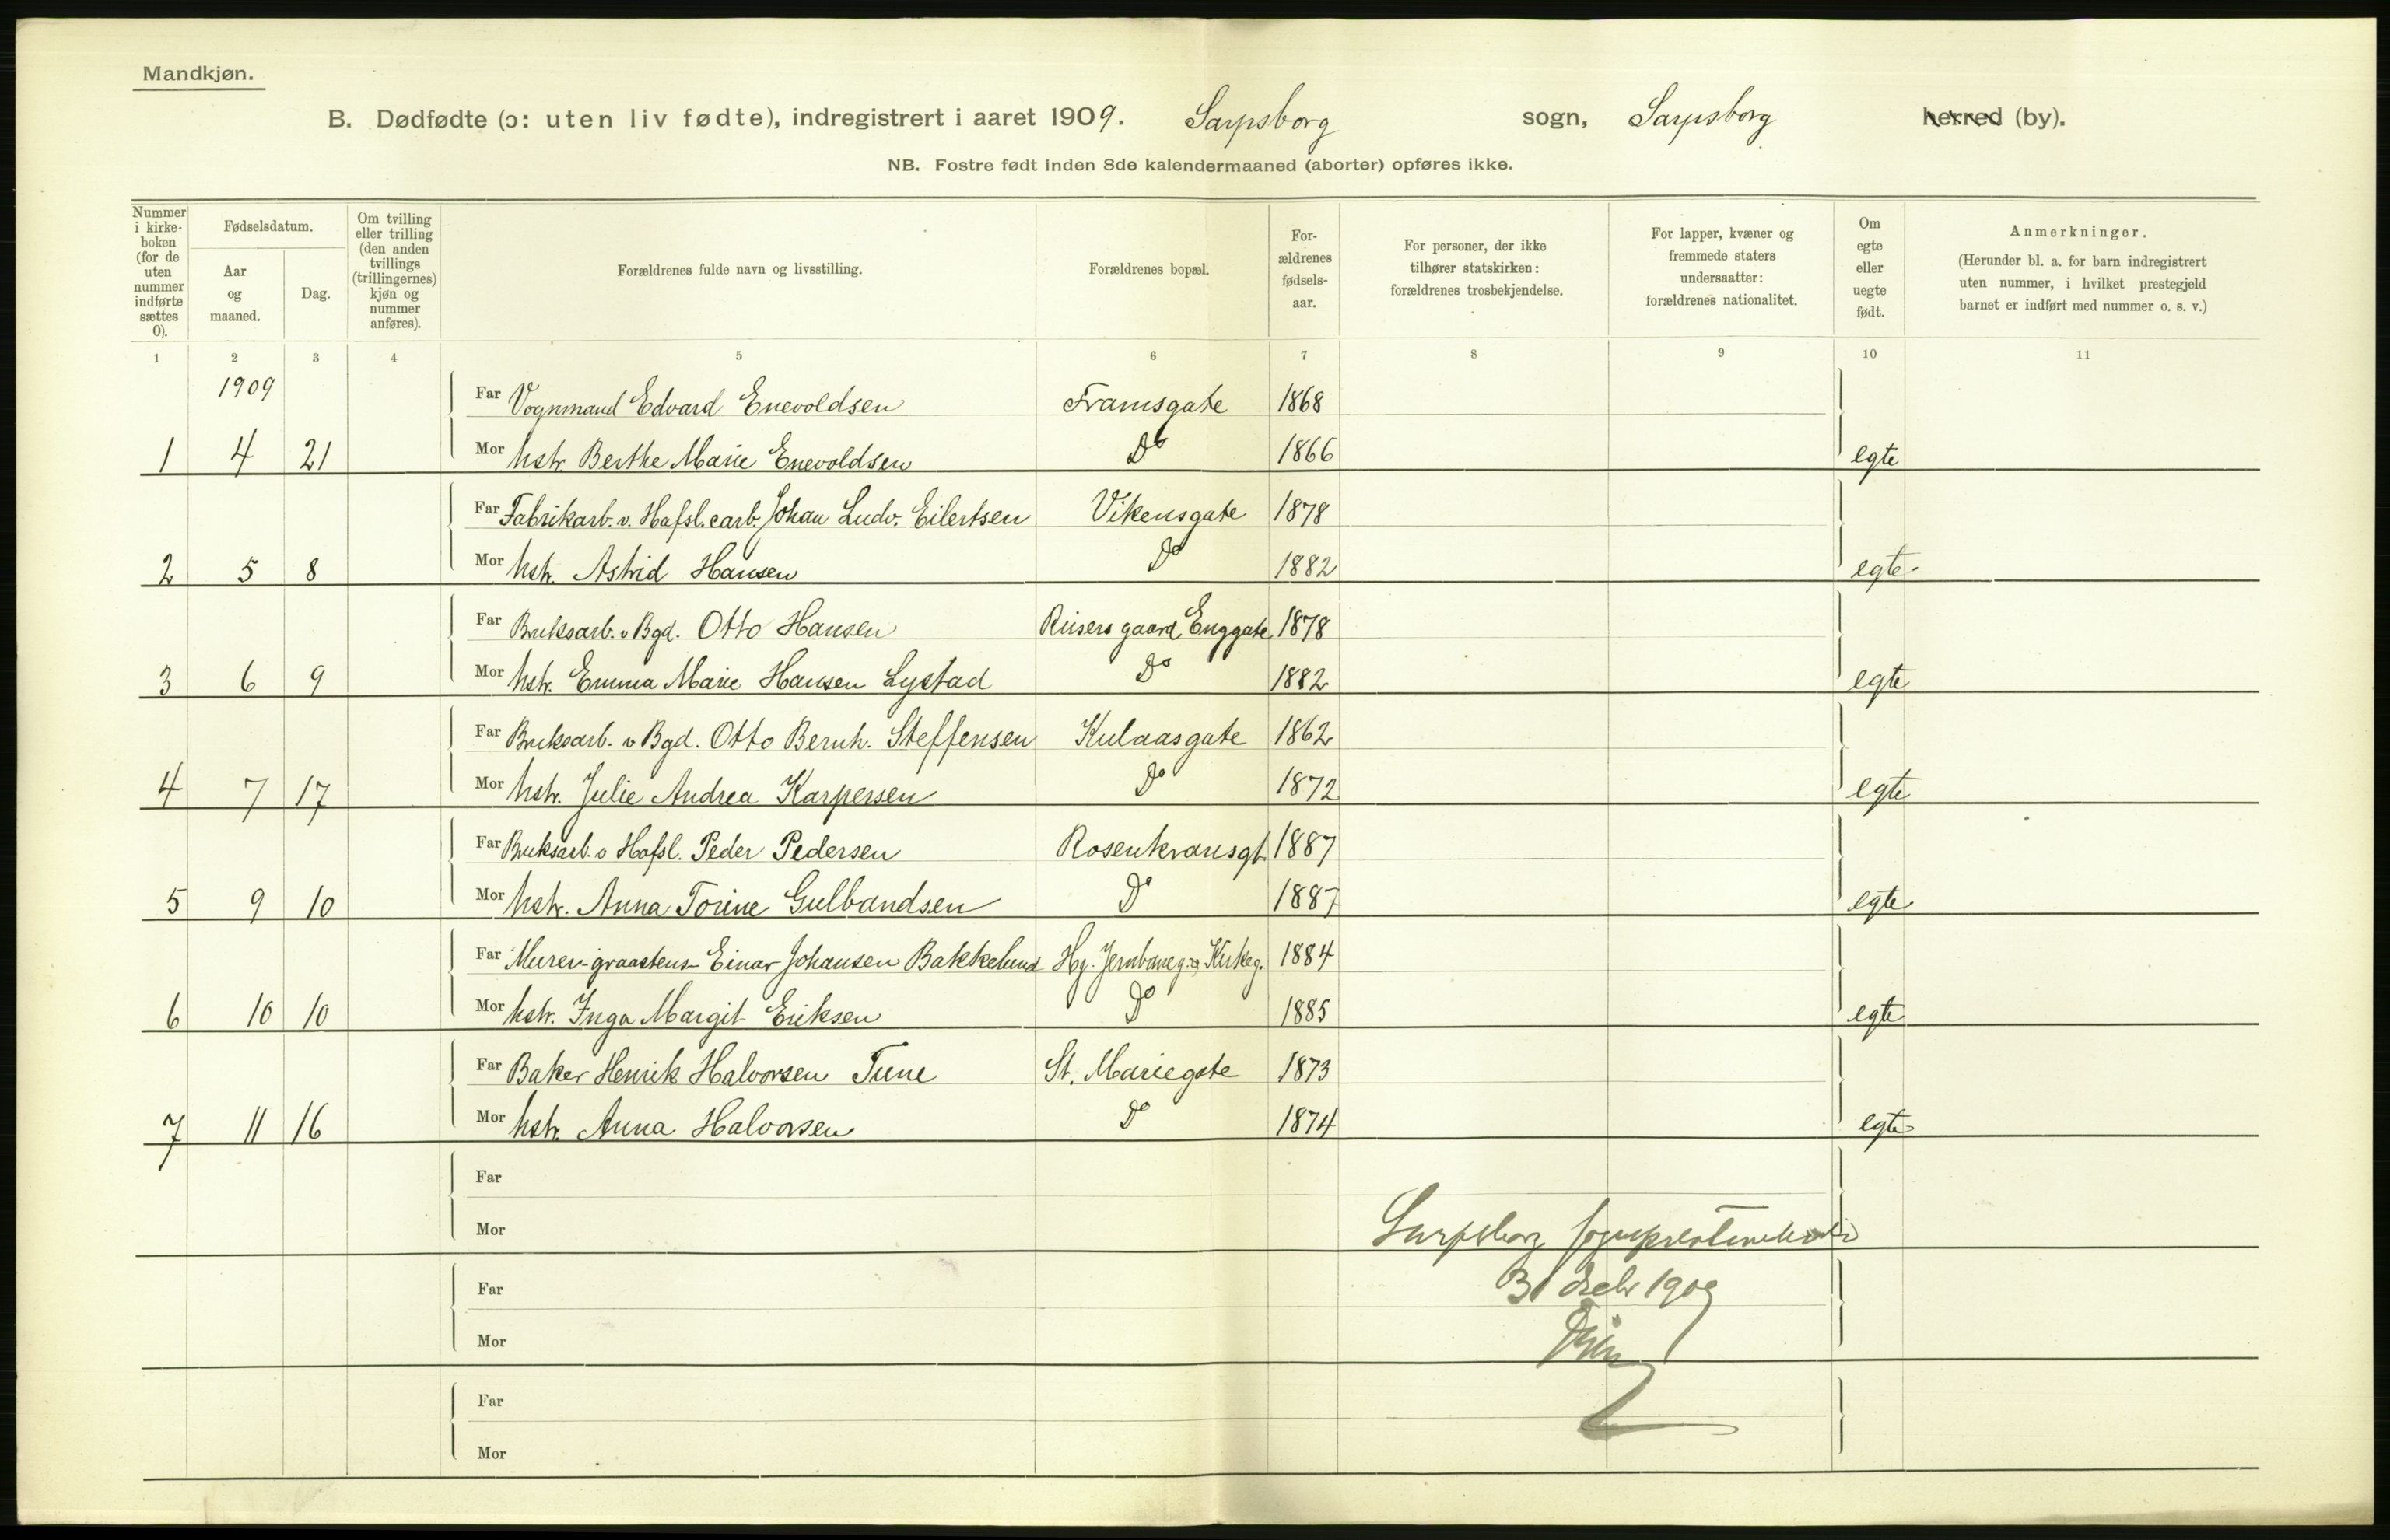 Mandkjøn.
B. Dødfødte (ɔ: uten liv fødte), indregistrert i aaret 1909. Sarpsborg sogn, Sarpsborg herred (by).
NB. Fostre født inden 8de kalendermaaned (aborter) opføres ikke.
Nummer i kirke-boken (for de uten nummer indførte sættes 0).
Fødselsdatum.
Aar og maaned.
Dag.
Om tvilling eller trilling (den anden tvillings (trillingernes) kjøn og nummer anføres).
Forældrenes fulde navn og livsstilling.
Forældrenes bopæl.
For-ældrenes fødsels-aar.
For personer, der ikke tilhører statskirken: forældrenes trosbekjendelse.
For lapper, kvæner og fremmede staters undersaatter: forældrenes nationalitet.
Om egte eller uegte født.
Anmerkninger.
(Herunder bl. a. for barn indregistrert uten nummer, i hvilket prestegjeld barnet er indført med nummer o. s. v.)
1 2 3 4 5 6 7 8 9 10 11
1909
Far Vognmand Edvard Enevoldsen Framsgate 1868
1 4 21 Mor hstr. Berthe Marie Enevoldsen Do 1866 egte
Far Fabrikarb. v. Hafsl. carb. Johan Ludv. Eilertsen Vikensgate 1878
2 5 8 Mor hstr. Astrid Hansen Do 1882 egte
Far Bruksarb. v Bgd. Otto Hansen Riisers gaard Enggate 1878
3 6 9 Mor hstr. Emma Marie Hansen Lystad Do 1882 egte
Far Bruksarb. v Bgd. Otto Bernh. Steffensen Kulaasgate 1862
4 7 17 Mor hstr. Julie Andrea Karpersen Do 1872 egte
Far Bruksarb. v Hafsl. Peder Pedersen Rosenkransgt. 1887
5 9 10 Mor hstr. Anna Torine Gulbandsen Do 1887 egte
Far Murer-graastens- Einar Johansen Bakkelund Hj. Jernbaneg. og Kirkeg. 1884
6 10 10 Mor hstr. Inga Margit Eriksen Do 1885 egte
Far Baker Henrik Halvorsen Tune St. Mariegate 1873
7 11 16 Mor hstr. Anna Halvorsen Do 1874 egte
Far
Mor
Sarpsborg
Far
31 decbr 1909
Mor
Far
Mor